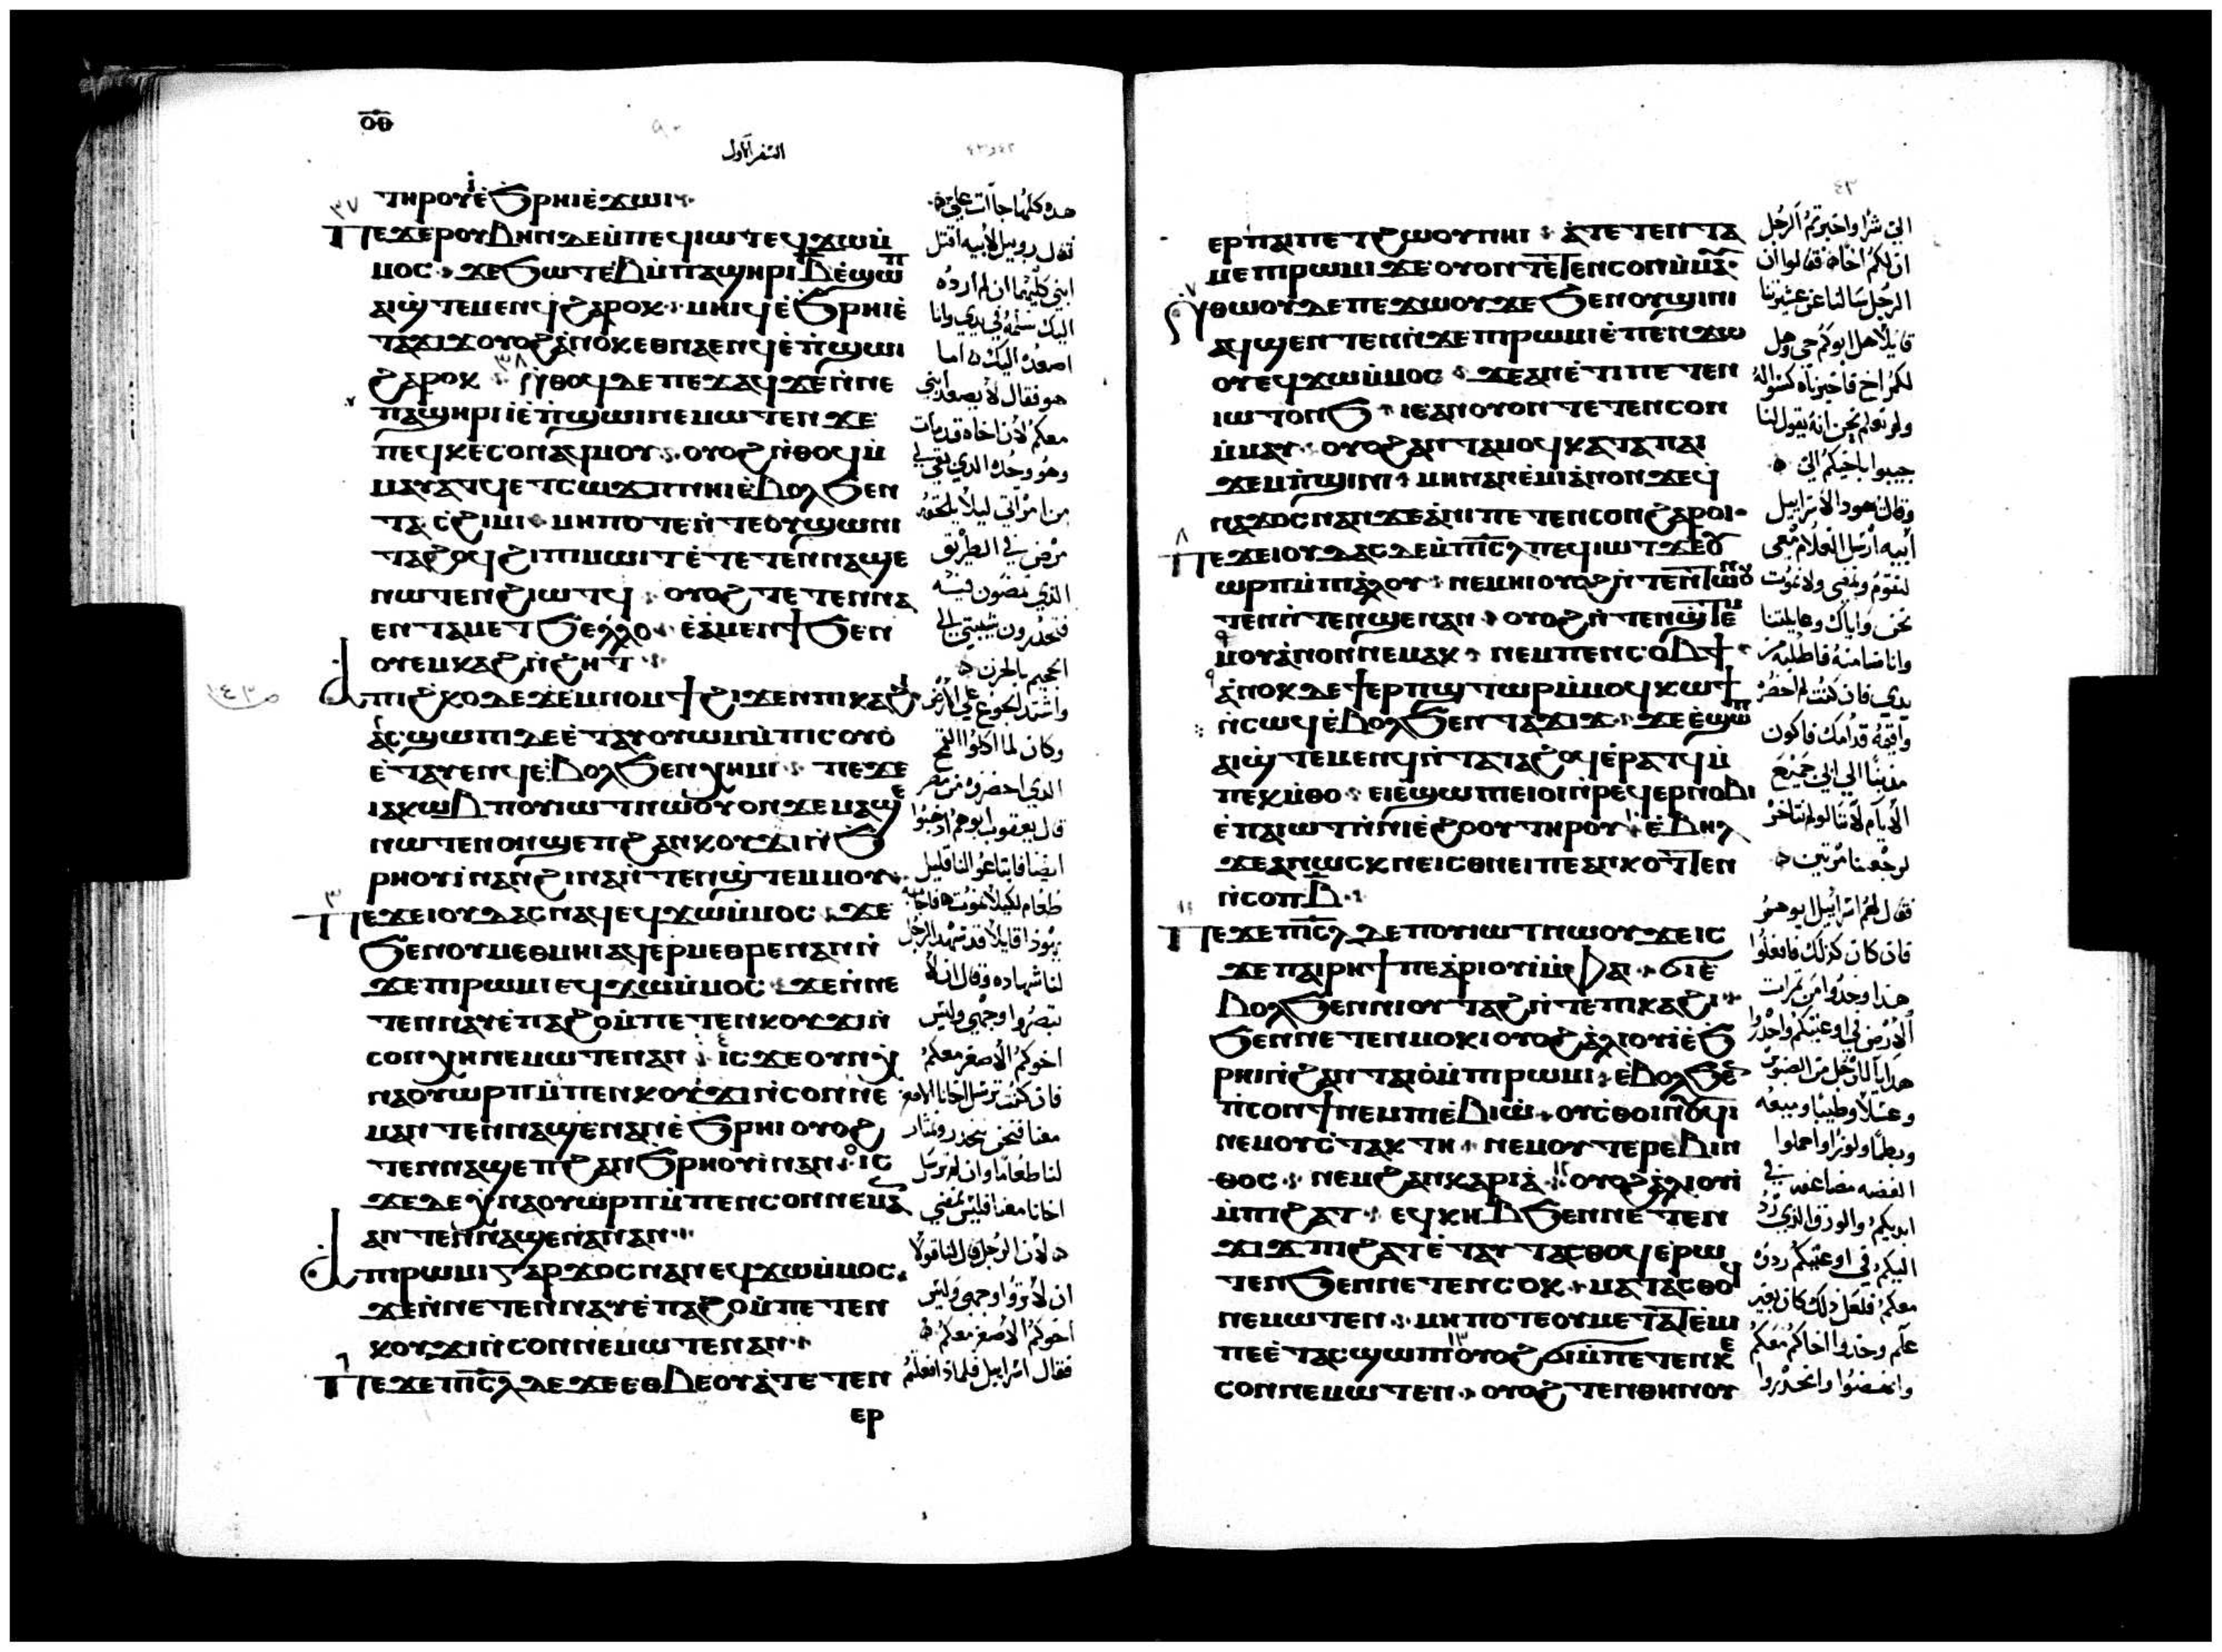 ⲟⲑ
السفر الأول
ⲧⲏⲣⲟⲩ ⲉ̀ϧⲣⲏⲓ ⲉ̀ϫⲱⲓ
ⲡⲉϫⲉ ⲣⲟⲩⲃⲏⲛ ⲇⲉ ⲙ̀ⲡⲉϥⲓⲱⲧ ⲉϥϫⲱ ⲙ̀
ⲙⲟⲥ ϫⲉ ϧⲱⲧⲉⲃ ⲙ̀ⲡⲁϣⲏⲣⲓ ⲃ̅ ⲉ̀ϣⲱⲡ
ⲁⲓϣ̀ⲧⲉⲙⲉⲛϥ ϩⲁⲣⲟⲕ ⲙⲏⲓϥ ⲉ̀ϧⲣⲏⲓ ⲉ̀
ⲧⲁϫⲓϫ ⲟⲩⲟϩ ⲁ̀ⲛⲟⲕ ⲉⲑⲛⲁⲉⲛϥ ⲉ̀ⲡ̀ϣⲱⲓ
ϩⲁⲣⲟⲕ ⲛ̀ⲑⲟϥ ⲇⲉ ⲡⲉϫⲁϥ ϫⲉ ⲛ̀ⲛⲉ
ⲡⲁϣⲏⲣⲓ ⲓ̀ ⲉ̀ⲡ̀ϣⲱⲓ ⲛⲉⲙⲱⲧⲉⲛ ϫⲉ
ⲡⲉϥⲕⲉⲥⲟⲛ ⲁϥⲙⲟⲩ ⲟⲩⲟϩ ⲛ̀ⲑⲟϥ ⲙ̀
ⲙⲁⲩⲁⲧϥ ⲉⲧⲥⲱϫⲡ ⲛⲏⲓ ⲉ̀ⲃⲟⲗ ϧⲉⲛ
ⲧⲁⲥϩⲓⲙⲓ ⲙⲏⲡⲟⲧⲉ ⲛ̀ⲧⲉ ⲟⲩϣⲱⲛⲓ
ⲧⲁϩⲟϥ ϩⲓ ⲡⲓⲙⲱⲓⲧ ⲉ̀ⲧⲉⲧⲉⲛⲛⲁϣⲉ
ⲛⲱⲧⲉⲛ ϩⲓⲱⲧϥ ⲟⲩⲟϩ ⲧⲉⲧⲉⲛⲛⲁ
ⲉⲛ ⲧⲁⲙⲉⲧϧⲉⲗⲗⲟ ⲉ̀ⲁ̀ⲙⲉⲛϯ ϧⲉⲛ
ⲟⲩⲉⲙⲕⲁϩ ⲛ̀ϩⲏⲧ
ⲁ̀ ⲡⲓϩ̀ⲕⲟ ⲇⲉ ϫⲉⲙⲛⲟⲙϯ ϩⲓϫⲉⲛ ⲡⲓⲕⲁϩⲓ
ⲁⲥϣⲱⲡⲓ ⲇⲉ ⲉ̀ⲧⲁⲩⲟⲩⲱⲙ ⲙ̀ⲡⲓⲥⲟⲩⲟ̀
ⲉ̀ⲧⲁⲩⲉⲛϥ ⲉ̀ⲃⲟⲗ ϧⲉⲛ ⲭⲏⲙⲓ ⲡⲉϫⲉ
ⲓⲁⲕⲱⲃ ⲡⲟⲩⲓⲱⲧ ⲛⲱⲟⲩ ⲟⲛ ϫⲉ ⲙⲁϣⲉ
ⲛⲱⲧⲉⲛ ⲟⲛ ϣⲉⲡ ϩⲁⲛⲕⲟⲩϫⲓ ⲛ̀ϧ
ⲣⲏⲟⲩⲓ̀ ⲛⲁⲛ ϩⲓⲛⲁ ⲛ̀ⲧⲉⲛϣ̀ⲧⲉⲙⲙⲟⲩ
ⲡⲉϫⲉ ⲓⲟⲩⲇⲁⲥ ⲛⲁϥ ⲉϥϫⲱ ⲙ̀ⲙⲟⲥ ϫⲉ
ϧⲉⲛ ⲟⲩⲙⲉⲑⲙⲏⲓ ⲁϥⲉⲣⲙⲉⲑⲣⲉ ⲛⲁⲛ ⲛ̀
ϫⲉ ⲡⲓⲣⲱⲙⲓ ⲉϥϫⲱ ⲙ̀ⲙⲟⲥ ϫⲉ ⲛ̀ⲛⲉ
ⲧⲉⲛⲛⲁⲩ ⲉ̀ⲡⲁϩⲟ ⲙ̀ⲡⲉⲧⲉⲛⲕⲟⲩϫⲓ ⲛ̀
ⲥⲟⲛ ⲭⲏ ⲛⲉⲙⲱⲧⲉⲛ ⲁⲛ ⲓⲥϫⲉ ⲟⲩⲛ ⲭ̀
ⲛⲁⲟⲩⲱⲣⲡ ⲙ̀ⲡⲉⲛⲕⲟⲩϫⲓ ⲛ̀ⲥⲟⲛ ⲛⲉ
ⲙⲁⲛ ⲧⲉⲛⲛⲁϣⲉⲛⲁⲛ ⲉ̀ϧⲣⲏⲓ ⲟⲩⲟϩ
ⲧⲉⲛⲛⲁϣⲉⲡ ϩⲁⲛϧⲣⲏⲟⲩⲓ̀ ⲛⲁⲛ ⲓⲥ
ϫⲉ ⲇⲉ ⲭ̀ⲛⲁⲟⲩⲱⲣⲡ ⲙ̀ⲡⲉⲛⲥⲟⲛ ⲛⲉⲙⲁ
ⲁⲛ ⲧⲉⲛⲛⲁϣⲉⲛⲁⲛ ⲁⲛ
ⲁ̀ ⲡⲓⲣⲱⲙⲓ ⲅⲁⲣ ϫⲟⲥ ⲛⲁⲛ ⲉϥϫⲱ ⲙ̀ⲙⲟⲥ
ϫⲉ ⲛ̀ⲛⲉⲧⲉⲛⲛⲁⲩ ⲉ̀ⲡⲁϩⲟ ⲙ̀ⲡⲉⲧⲉⲛ
ⲕⲟⲩϫⲓ ⲛ̀ⲥⲟⲛ ⲛⲉⲙⲱⲧⲉⲛ ⲁⲛ
ⲡⲉϫⲉ ⲡⲓⲥ̅ⲗ̅ ⲇⲉ ϫⲉ ⲉⲑⲃⲉ ⲟⲩ ⲁ̀ⲧⲉⲧⲉⲛ
ⲉⲣ
هذه كلها جاات علي
فقال روبيل لابيه اقتل
ابني كليهما ان لم ارده
اليك سلمه في يدي وانا
اصعده اليك اما
هو فقال لا يصعد ابني
معكم لان اخاه قد مات
وهو وحده الذي بقي لي
من امراتي ليلا يلحقه
مرض في الطريق
الذي تمضون فيه
فتحدرون شيبتي الي
الجحيم بالحزن
واشتد الجوع علي الارض
وكان لما اكلوا القمح
الذي احضروه من مصر
قال يعقوب ابوهم ارجعوا
ايضا فابتاعوا لنا قليل
طعام لكيلا نموت فاجابه
يهوذا قايلا قد شهد الرجل
لنا شهاده وقال انه لا
تبصروا وجهي وليس
اخوكم الاصغر معكم
فان كنت ترسل اخانا الاصغر
معنا فنحن ننحدر ونمتار
لنا طعاما وان لم ترسل
اخانا معنا فليس نمضي
لان الرجل قال لنا قولا
ان لا تروا وجهي وليس
اخوكم الاصغر معكم
فقال اسراييل فلماذا فعلتم
٤٣
ⲉⲣ ⲡⲁⲓⲡⲉⲧϩⲱⲟⲩ ⲛⲏⲓ ⲁ̀ⲧⲉⲧⲉⲛⲧⲁ
ⲙⲉ ⲡⲓⲣⲱⲙⲓ ϫⲉ ⲟⲩⲟⲛⲧⲉⲧⲉⲛ ⲥⲟⲛ ⲙ̀ⲙⲁ
ⲛ̀ⲑⲱⲟⲩ ⲇⲉ ⲡⲉϫⲱⲟⲩ ϫⲉ ϧⲉⲛ ⲟⲩϣⲓⲛⲓ
ⲁϥϣⲉⲛⲧⲉⲛ ⲛ̀ϫⲉ ⲡⲓⲣⲱⲙⲓ ⲉ̀ⲡⲉⲛϫⲱ
ⲟⲩ ⲉϥϫⲱ ⲙ̀ⲙⲟⲥ ϫⲉ ⲁⲛ ⲉ̀ⲧⲓ ⲡⲉⲧⲉⲛ
ⲓⲱⲧ ⲟⲛϧ ⲓⲉ ⲁⲛ ⲟⲩⲟⲛⲧⲉⲧⲉⲛ ⲥⲟⲛ
ⲙ̀ⲙⲁⲩ ⲟⲩⲟϩ ⲁⲛⲧⲁⲙⲟϥ ⲕⲁⲧⲁ ⲡⲁⲓ
ϫⲉⲙⲡ̀ϣⲓⲛⲓ ⲙⲏ ⲛⲁⲛⲉ̀ⲙⲓ ⲁⲛⲟⲛ ϫⲉ ϥ̀
ⲛⲁϫⲟⲥ ⲛⲁⲛ ϫⲉ ⲁ̀ⲛⲓ ⲡⲉⲧⲉⲛⲥⲟⲛ ϩⲁⲣⲟⲓ
ⲡⲉϫⲉ ⲓⲟⲩⲇⲁⲥ ⲇⲉ ⲙ̀ⲡⲓⲥ̅ⲗ̅ ⲡⲉϥⲓⲱⲧ ϫⲉ ⲟⲩ
ⲱⲣⲡ ⲙ̀ⲡⲓⲁ̀ⲗⲟⲩ ⲛⲉⲙⲏⲓ ⲟⲩⲟϩ ⲛ̀ⲧⲉⲛⲧⲱⲛⲟⲩ
ⲧⲉⲛ ⲛ̀ⲧⲉⲛϣⲉⲛⲁⲛ ⲟⲩⲟϩ ⲛ̀ⲧⲉⲛϣⲧⲉⲙ
ⲙⲟⲩ ⲁ̀ⲛⲟⲛ ⲛⲉⲙⲁⲕ ⲛⲉⲙ ⲡⲉⲛⲥⲟⲃϯ
ⲁ̀ⲛⲟⲕ ⲇⲉ ϯⲉⲣⲡ̀ϣⲧⲱⲣⲓ ⲙ̀ⲙⲟϥ ⲕⲱϯ
ⲛ̀ⲥⲱϥ ⲉ̀ⲃⲟⲗ ϧⲉⲛ ⲧⲁϫⲓϫ ϫⲉ ⲉ̀ϣⲱⲡ
ⲁⲓϣ̀ⲧⲉⲙⲉⲛϥ ⲛ̀ⲧⲁⲧⲁϩⲟϥ ⲉ̀ⲣⲁⲧϥ ⲙ̀
ⲡⲉⲕⲙ̀ⲑⲟ ⲉⲓⲉ̀ϣⲱⲡⲓ ⲉⲓⲟⲓ ⲛ̀ⲣⲉϥⲉⲣⲛⲟⲃⲓ
ⲉ̀ⲡⲁⲓⲱⲧ ⲛ̀ⲛⲓⲉ̀ϩⲟⲟⲩ ⲧⲏⲣⲟⲩ ⲉ̀ⲃⲏⲗ
ϫⲉ ⲁⲛⲱⲥⲕ ⲛⲉ ⲓⲥ ⲑⲛⲉⲓ ⲡⲉ ⲁⲛⲕⲟⲧⲧⲉⲛ
ⲛ̀ⲥⲟⲡ ⲃ̅
ⲡⲉϫⲉ ⲡⲓⲥ̅ⲗ̅ ⲇⲉ ⲡⲟⲩⲓⲱⲧ ⲛⲱⲟⲩ ϫⲉ ⲓⲥ
ϫⲉ ⲡⲁⲓⲣⲏϯ ⲡⲉ ⲁ̀ⲣⲓⲟⲩⲓ̀ ⲙ̀ⲫⲁⲓ ϭⲓ ⲉ̀
ⲃⲟⲗ ϧⲉⲛ ⲛⲓⲟⲩⲧⲁϩ ⲛ̀ⲧⲉ ⲡⲓⲕⲁϩⲓ
ϧⲉⲛ ⲛⲉⲧⲉⲛⲙⲟⲕⲓ ⲟⲩⲟϩ ⲁ̀ⲗⲓⲟⲩⲓ̀ ⲉ̀ϧ
ⲣⲏⲓ ⲛ̀ϩⲁⲛⲧⲁⲓⲟ̀ ⲙ̀ⲡⲓⲣⲱⲙⲓ ⲉ̀ⲃⲟⲗ ϧⲉⲛ
ⲡⲓⲥⲟⲛϯ ⲛⲉⲙ ⲡⲓⲉ̀ⲃⲓⲱ̀ ⲟⲩⲥⲑⲟⲓⲛⲟⲩϥⲓ
ⲛⲉⲙ ⲟⲩⲥⲧⲁⲕⲧⲏ ⲛⲉⲙ ⲟⲩⲧⲉⲣⲉⲃⲓⲛ
ⲑⲟⲥ ⲛⲉⲙ ϩⲁⲛⲕⲁⲣⲓⲁ̀ ⲟⲩⲟϩ ⲁ̀ⲗⲓⲟⲩⲓ̀
ⲙ̀ⲡⲓϩⲁⲧ ⲉϥⲕⲏⲃ ϧⲉⲛ ⲛⲉⲧⲉⲛ
ϫⲓϫ ⲡⲓϩⲁⲧ ⲉ̀ⲧⲁⲩⲧⲁⲥⲑⲟϥ ⲉ̀ⲣⲱ
ⲧⲉⲛ ϧⲉⲛ ⲛⲉⲧⲉⲛⲥⲟⲕ ⲙⲁⲧⲁⲥⲑⲟϥ
ⲛⲉⲙⲱⲧⲉⲛ ⲙⲏⲡⲟⲧⲉ ⲟⲩⲙⲉⲧⲁⲧⲉ̀ⲙⲓ
ⲡⲉ ⲉ̀ⲧⲁⲥϣⲱⲡⲓ ⲟⲩⲟϩ ϭⲓ ⲙ̀ⲡⲉⲧⲉⲛⲕⲉ
ⲥⲟⲛ ⲛⲉⲙⲱⲧⲉⲛ ⲟⲩⲟϩ ⲧⲉⲛⲑⲏⲛⲟⲩ
الي شرا واخبرتم الرجل
ان لكم اخاه فقالوا ان
الرجل سالنا عن عشيرتنا
قايلا هل ابوكم حي وهل
لكم اخ فاخبرناه كسواله
ولم نعلم نحن انه يقول لنا
جيبوا باخيكم الي
وقال يهودا لاسراييل
ابيه ارسل الغلام معي
لنقوم ونمضي ولا نموت
نحن واياك وعايلتنا
وانا ضامنه فاطلبه من
يدي فان كنت لم احضره
واقيمه قدامك فاكون
مذنبا الي ابي جميع
الايام لاننا لو لم نتاخر
لرجعنا مرتين
فقال لهم اسراييل ابوهم
فان كان كذلك فافعلوا
هذا وخذوا من ثمرات
الارض في اوعيتكم واحدروا
هدايا للرجل من الصنوبر
وعسلا وطيبا وميعه
وبطما ولوزا واحملوا
الفضه مضاعفه في
ايديكم والورق الذي رد
اليكم في اوعيتكم ردوه
معكم فلعل ذلك كان بغير
علم وخذوا اخاكم معكم
وانهضوا وانحدروا